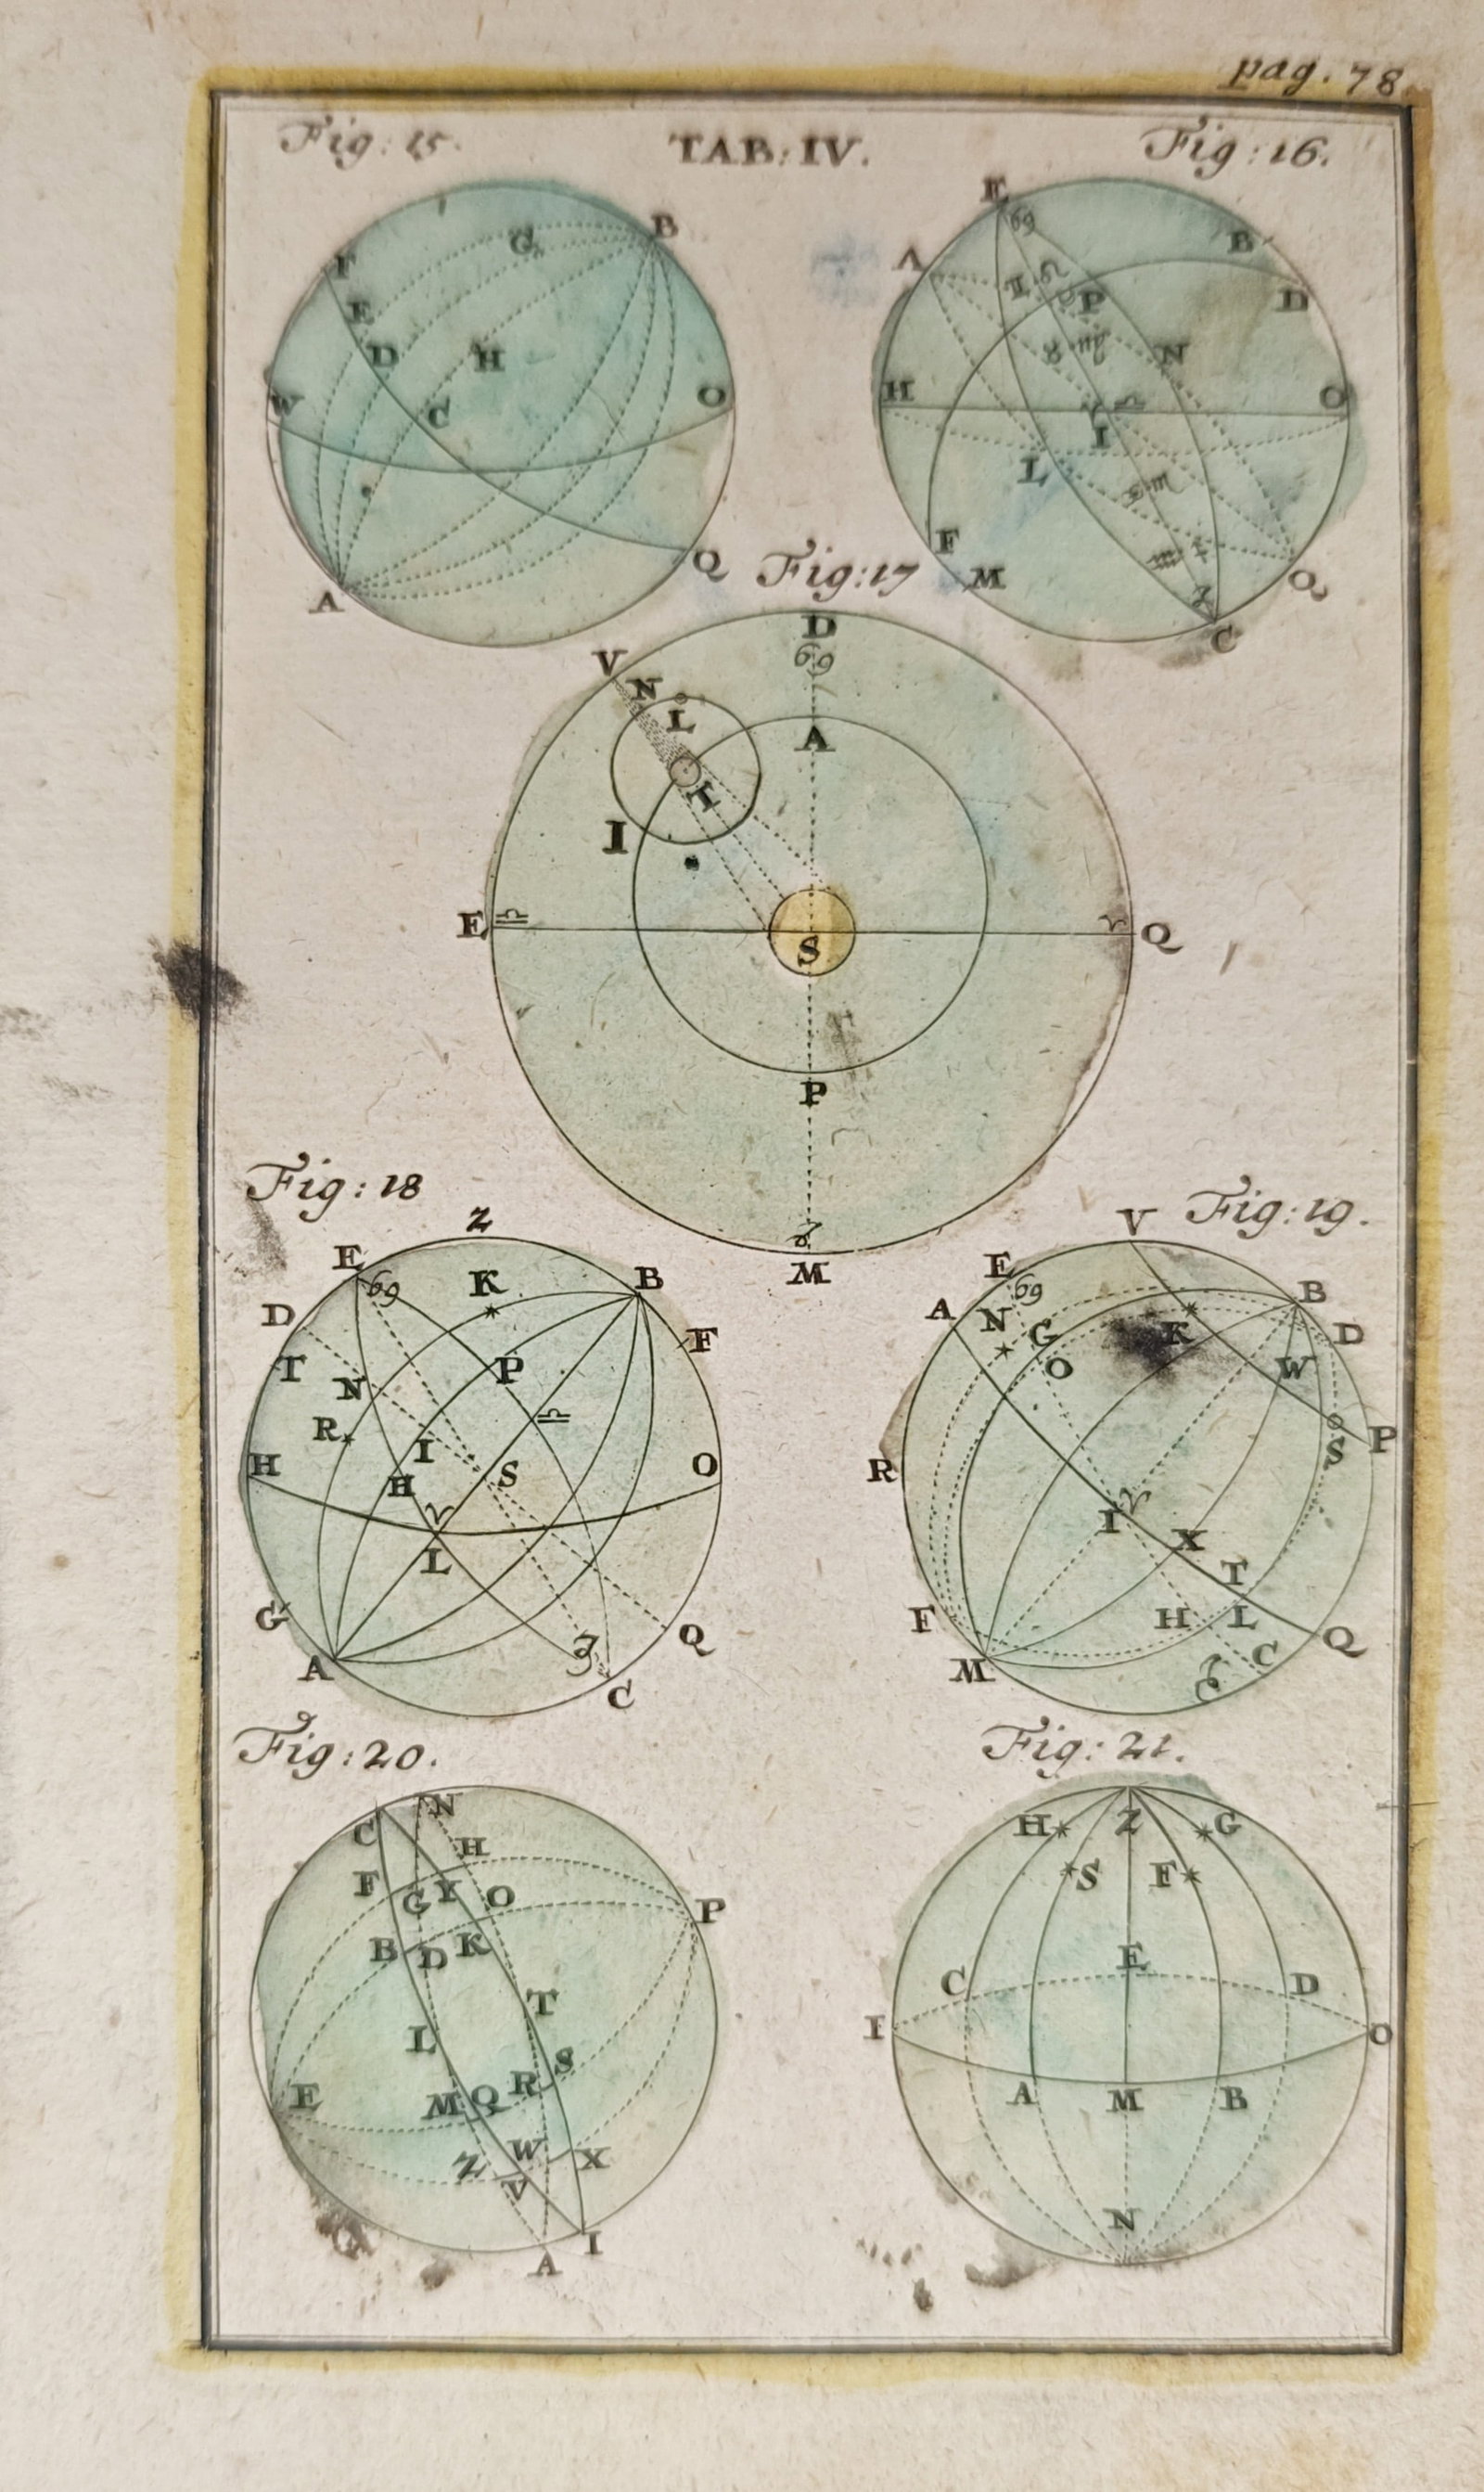 pag. 78.
Fig: 15. TAB: IV. Fig: 16.
F
E
D
C
G
H
B
W
O
A
Q
E
♋
A
B
D
♊ ♌
P
♉ ♍
N
H
♈ ♎
O
I
L
F
M
Q
C
Fig: 17
D
♋
V
N
L
A
T
I
E ♎
S
♈ Q
P
♑
M
Fig: 18
Z
E
♋
K
B
D
F
T
N
P
R
I
♎
H
H
S
O
♈
L
G
Q
A
♑
C
Fig: 19.
V
E
♋
B
A
N
G
K
D
O
W
S
P
R
I
♈
X
T
F
H
L
Q
M
C
♑
Fig: 20.
N
C
H
F
G Y O
P
B D K
T
L
S
E
M Q R
Z W X
V
I
A
Fig: 21.
H Z G
S F
E
C D
I O
A M B
N